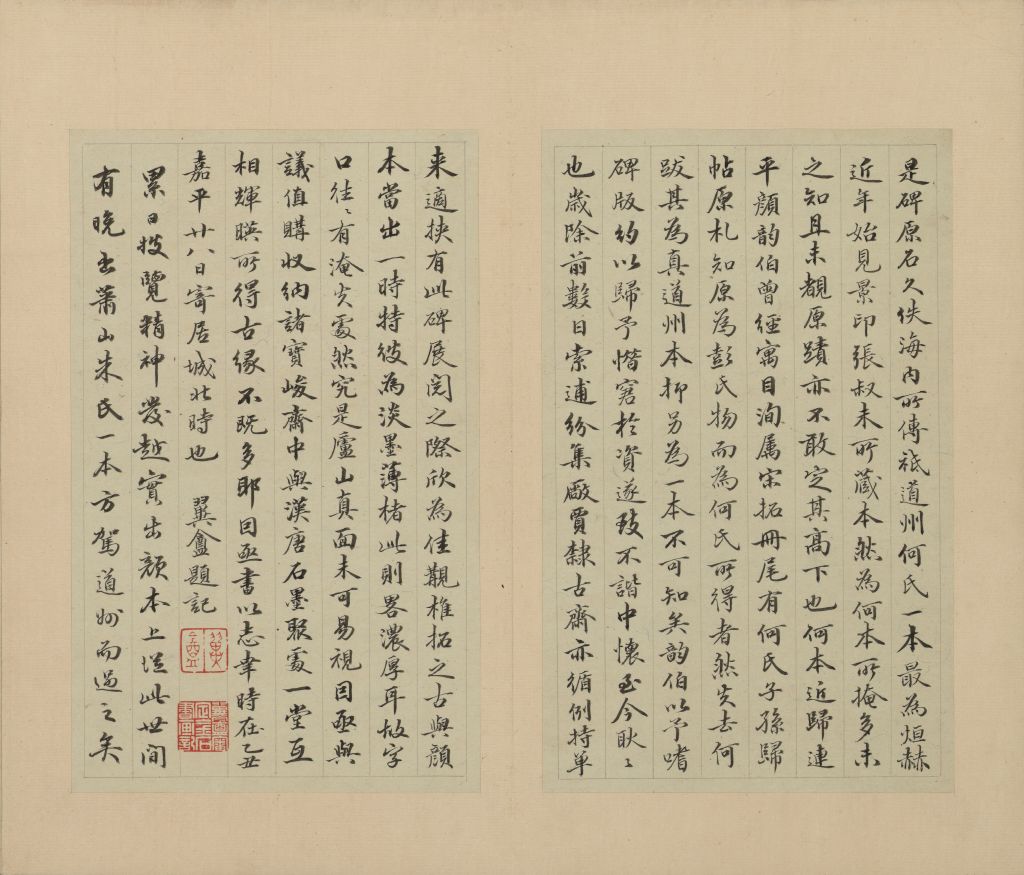 是碑原石久佚海內所傳祗道州何氏一本最為烜赫
近年始見景印張叔未所藏本然為何本所掩多未
之知且未覩原蹟亦不敢定其高下也何本近歸連
平顏韵伯曾經寓目洵屬宋拓冊尾有何氏子孫歸
帖原札知原為彭氏物而為何氏所得者然失去何
跋其為真道州本抑另為一本不可知矣韵伯以予嗜
碑版約以歸予惜窘於資遂致不諧中懷至今耿〻
也歲除前數日索逋紛集厰賈隸古齋亦循例持單
来適挾有此碑展閱之際欣為佳覯椎拓之古與顏
本當出一時特彼為淡墨薄楮此則畧濃厚耳故字
口往〻有淹失處然究是廬山真面未可易視因亟與
議值購收納諸寶峻齋中與漢唐石墨聚處一堂互
相輝暎所得古緣不既多耶因亟書以志幸時在乙丑
嘉平廿八日寄居城北時也　翼盦題記
累日披覽精神發越實出顏本上淫此世間
有晚出蕭山朱氏一本方駕道州而過之矣
翼盦